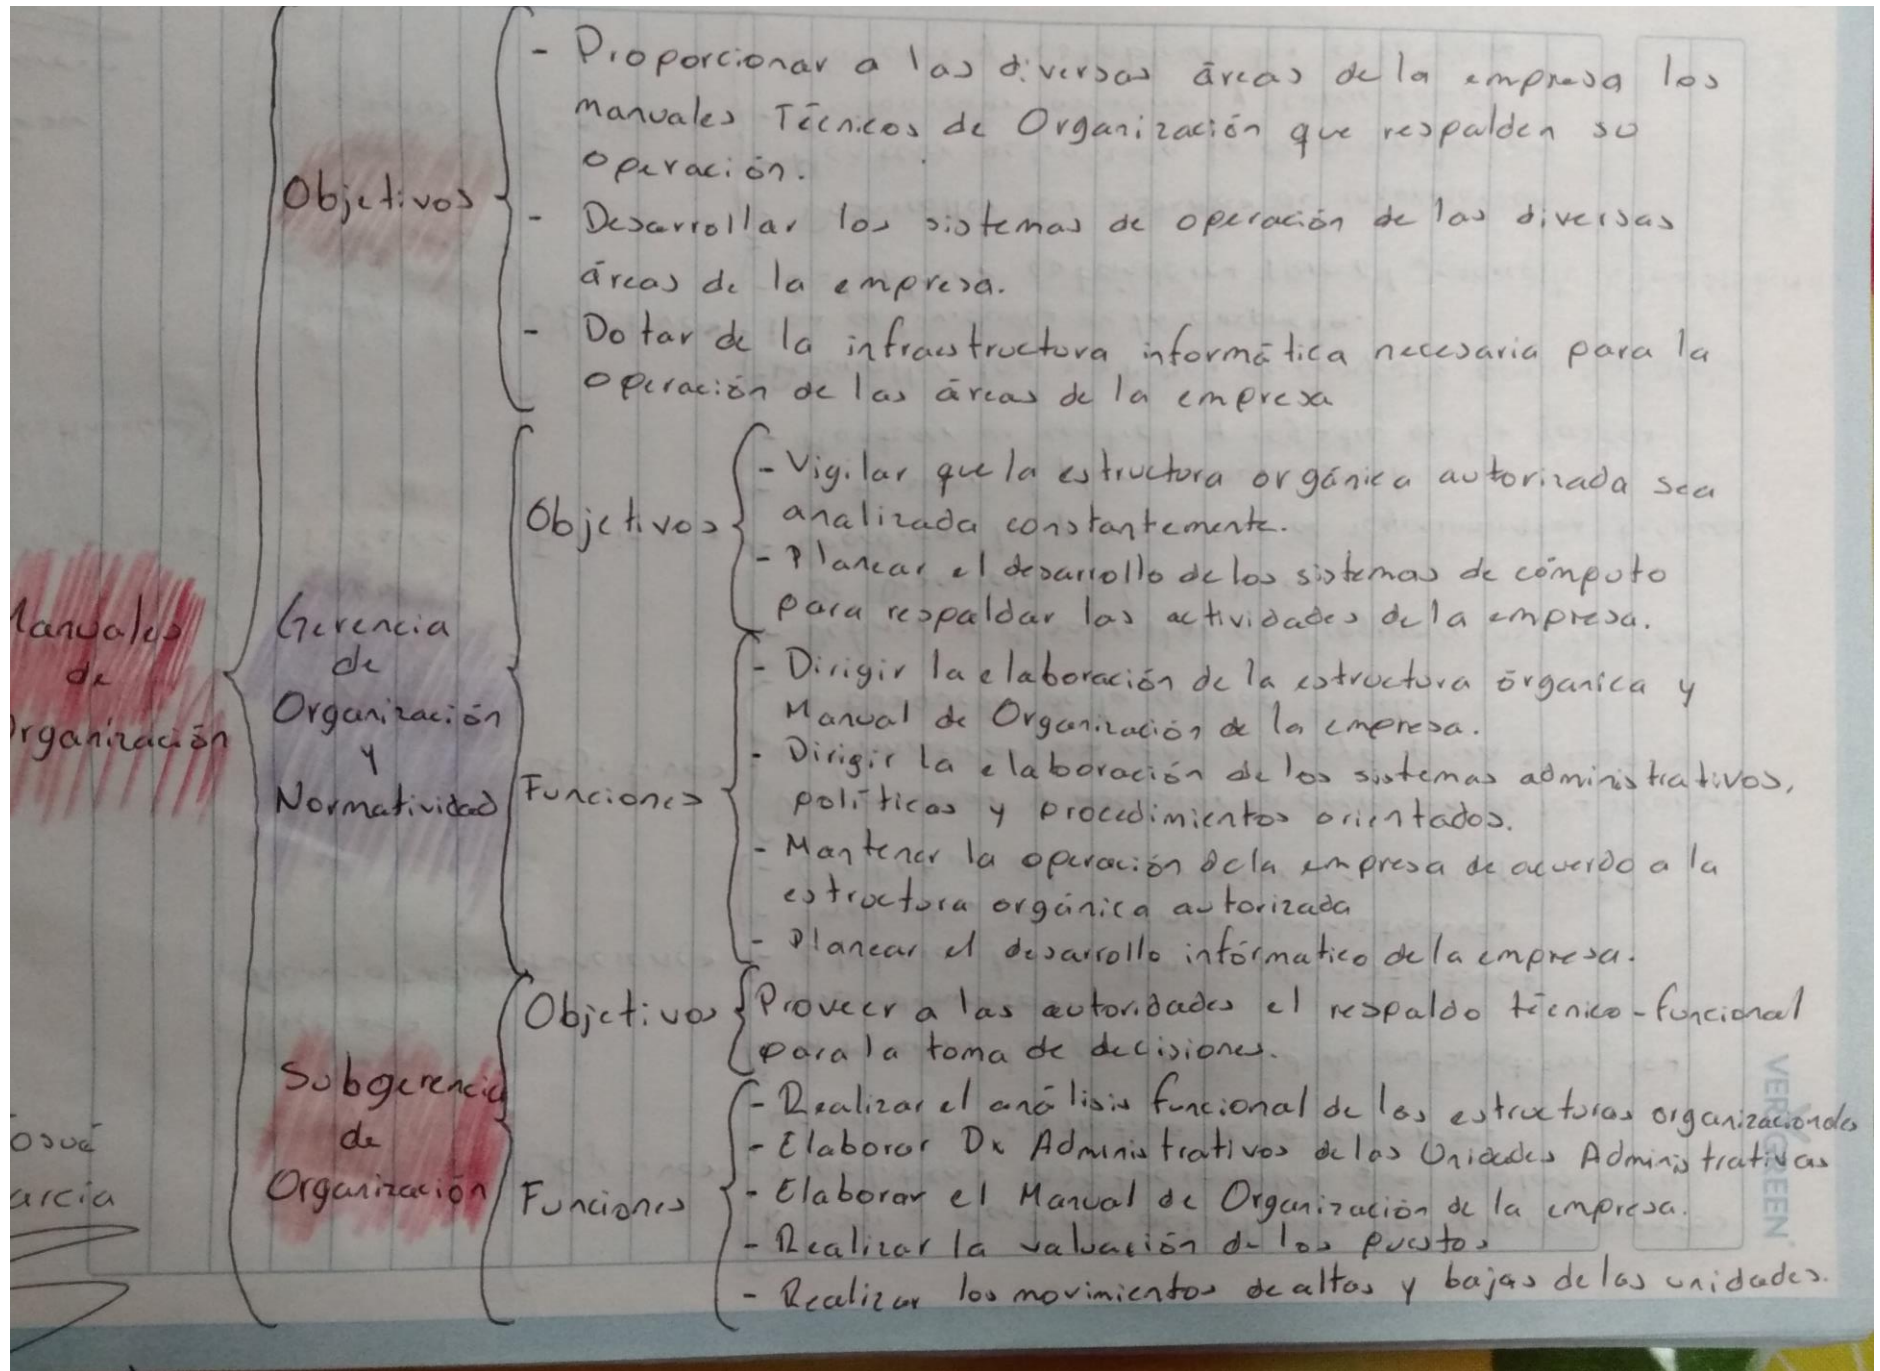 Manuales
de
Organización
Objetivos
- Proporcionar a las diversas áreas de la empresa los
manuales Técnicos de Organización que respalden su
operación.
- Desarrollar los sistemas de operación de las diversas
áreas de la empresa.
- Dotar de la infraestructura informática necesaria para la
operación de las áreas de la empresa
Gerencia
de
Organización
y
Normatividad
Objetivos
- Vigilar que la estructura orgánica autorizada sea
analizada constantemente.
- Planear el desarrollo de los sistemas de cómputo
para respaldar las actividades de la empresa.
Funciones
- Dirigir la elaboración de la estructura órganica y
Manual de Organización de la empresa.
- Dirigir la elaboración de los sistemas administrativos,
políticas y procedimientos orientados.
- Mantener la operación de la empresa de acuerdo a la
estructura orgánica autorizada
- Planear el desarrollo infórmatico de la empresa.
Subgerencia
de
Organización
Objetivos
Proveer a las autoridades el respaldo técnico-funcional
para la toma de decisiones.
Funciones
- Realizar el análisis funcional de las estructuras organizacionales
- Elaborar Dx Administrativos de las Unidades Administrativas
- Elaborar el Manual de Organización de la empresa.
- Realizar la valuación de los puestos
- Realizar los movimientos de altas y bajas de las unidades.
osué
arcía
VERXGREEN